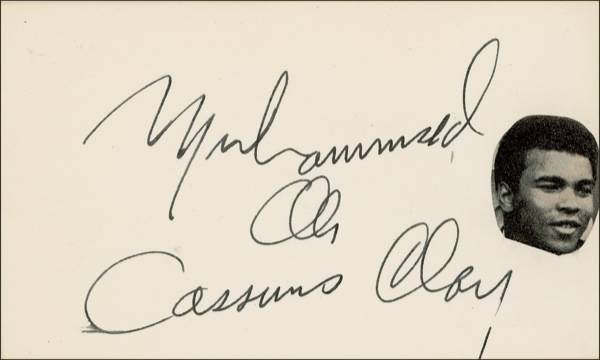 Muhammad
Ali
Cassius Clay